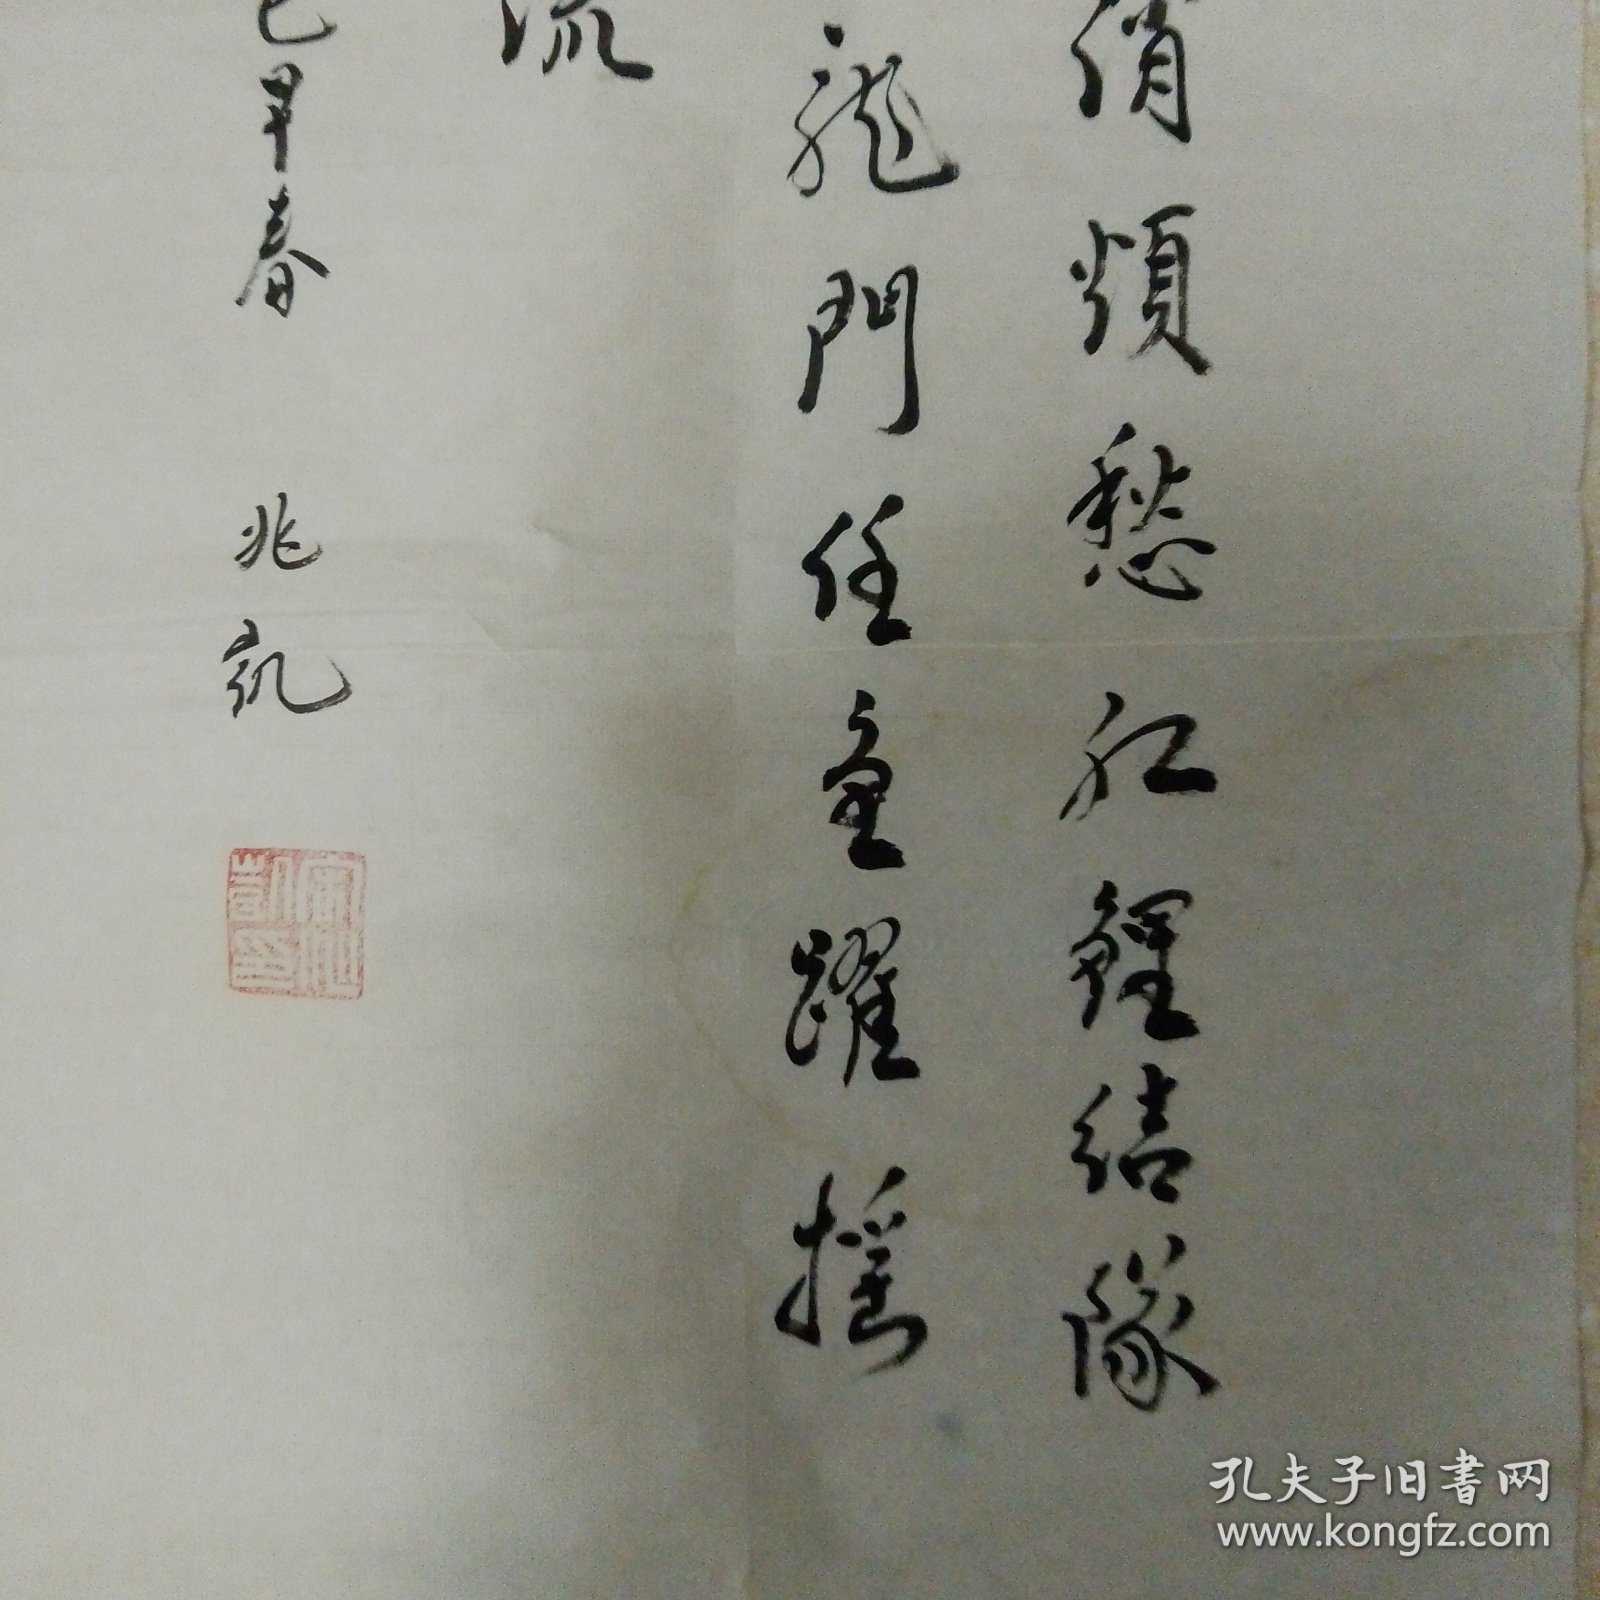 消煩愁紅鯉結隊
龍門任重躍搖
流
早春 兆凱
孔夫子旧书网
www.kongfz.com